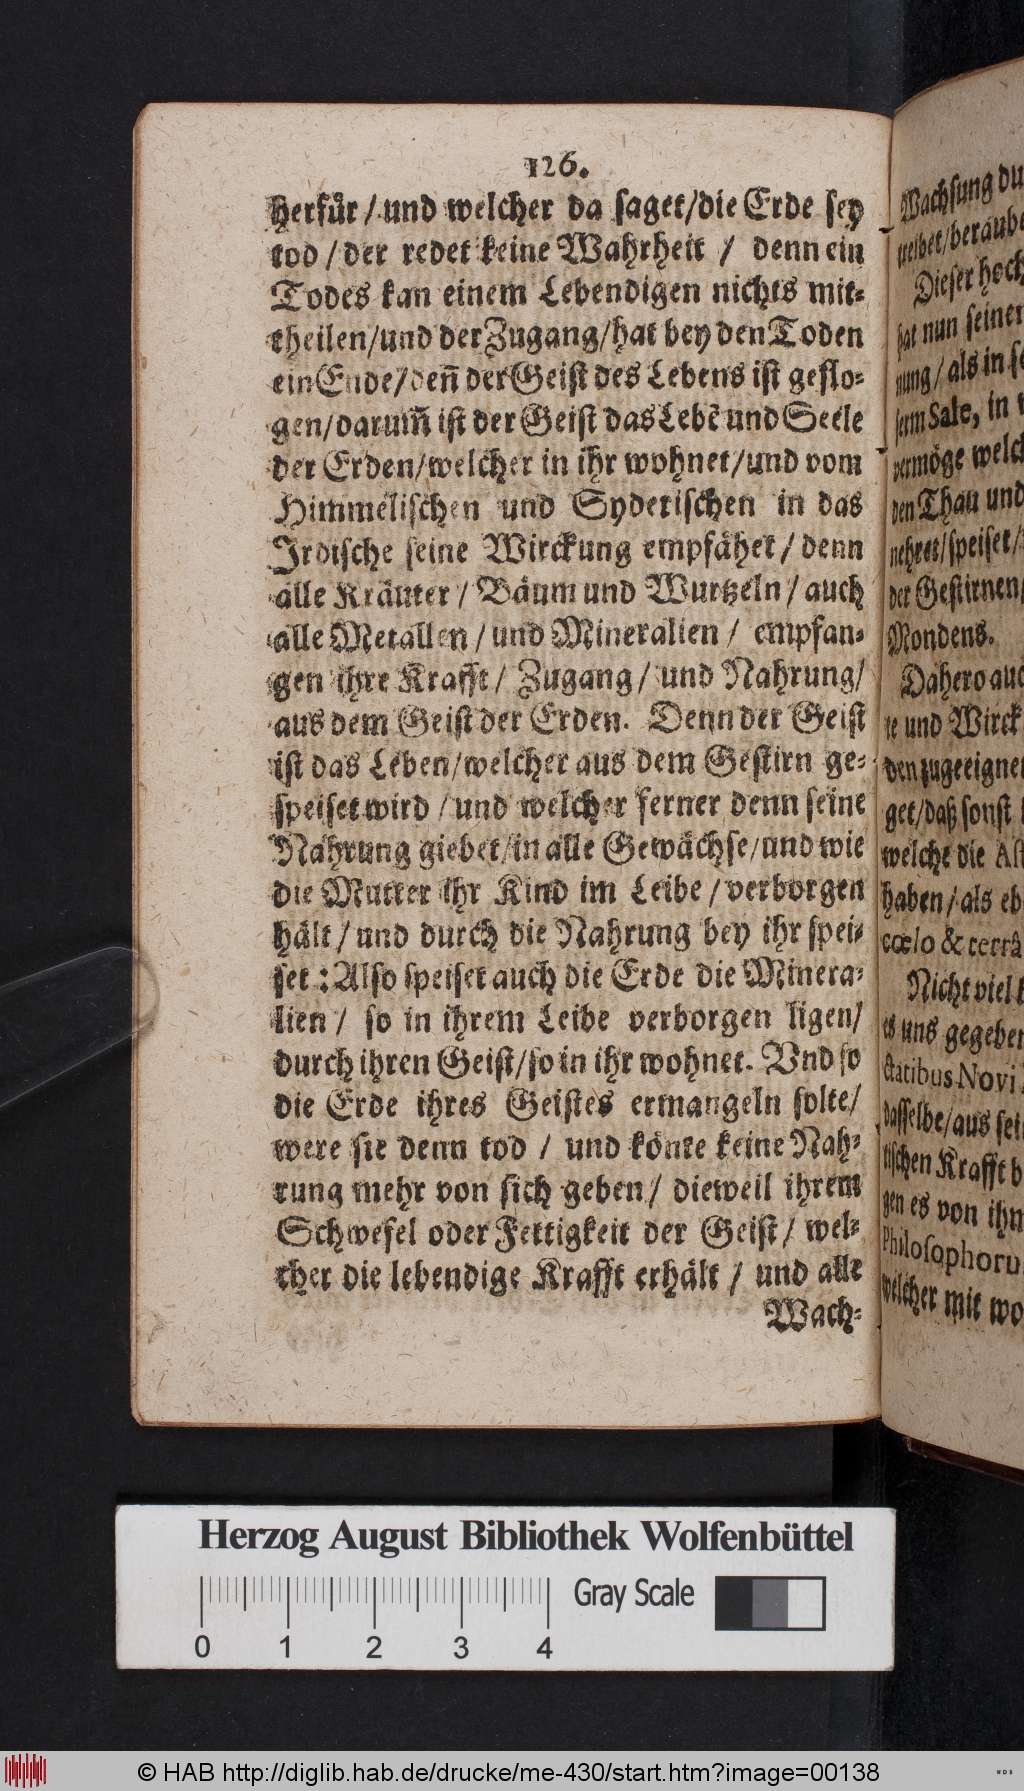 126.
herfür / und welcher da saget / die Erde sey
tod / der redet keine Wahrheit / denn ein
Todes kan einem Lebendigen nichts mit-
theilen / und der Zugang / hat bey den Toden
ein Ende / deñ der Geist des Lebens ist geflo-
gen / darum̃ ist der Geist das Lebẽ und Seele
der Erden / welcher in ihr wohnet / und vom
Himmelischen und Syderischen in das
Irdische seine Wirckung empfähet / denn
alle Kräuter / Bäum und Wurtzeln / auch
alle Metallen / und Mineralien / empfan-
gen ihre Krafft / Zugang / und Nahrung /
aus dem Geist der Erden. Denn der Geist
ist das Leben / welcher aus dem Gestirn ge-
speiset wird / und welcher ferner denn seine
Nahrung giebet / in alle Gewächse / und wie
die Mutter ihr Kind im Leibe / verborgen
hält / und durch die Nahrung bey ihr spei-
set : Also speiset auch die Erde die Minera-
lien / so in ihrem Leibe verborgen ligen /
durch ihren Geist / so in ihr wohnet. Vnd so
die Erde ihres Geistes ermangeln solte /
were sie denn tod / und könte keine Nah-
rung mehr von sich geben / dieweil ihrem
Schwefel oder Fettigkeit der Geist / wel-
cher die lebendige Krafft erhält / und alle
Wach-
Wachsung du
treibet / beraube
Dieser hoch
hat nun seiner
nung / als in se
serm Sale, in
vermöge welch
den Thau und
nehret / speiset /
der Gestirnen /
Mondens.
Dahero auc
te und Wirck
den zugeeignet
get / daß sonst
welche die Ast
haben / als eb
cœlo & terrâ
Nicht viel
es uns gegeben
ctatibus Novi
dasselbe / aus sei
tischen Krafft b
gen es von ihn
Philosophoru
welcher mit wo
Herzog August Bibliothek Wolfenbüttel
Gray Scale
0 1 2 3 4
© HAB http://diglib.hab.de/drucke/me-430/start.htm?image=00138